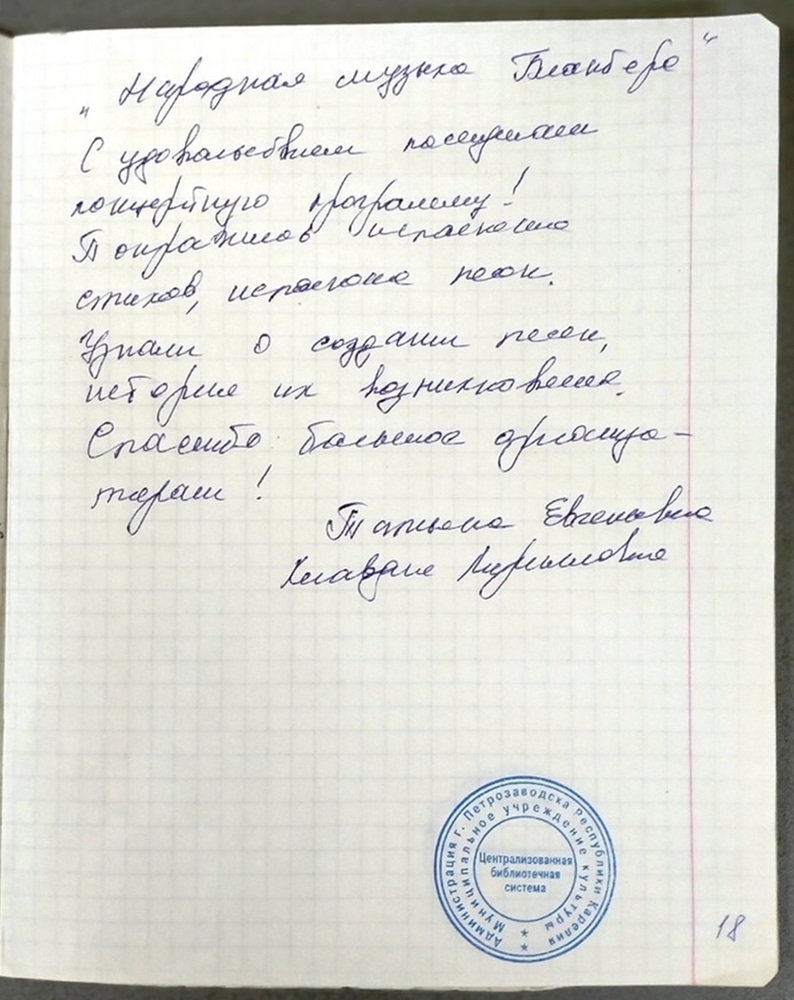 "Народная музыка Бланбера"
С удовольствием послушали
концертную программу!
Понравилось исполнение
стихов, исполнение песен.
Узнали о создании песен,
истории их возникновения.
Спасибо большое организа-
торам!
Татьяна Евгеньевна
Клавдия Кирилловна
Администрация г. Петрозаводска Республики Карелия
Муниципальное учреждение культуры
Централизованная
библиотечная
система
18